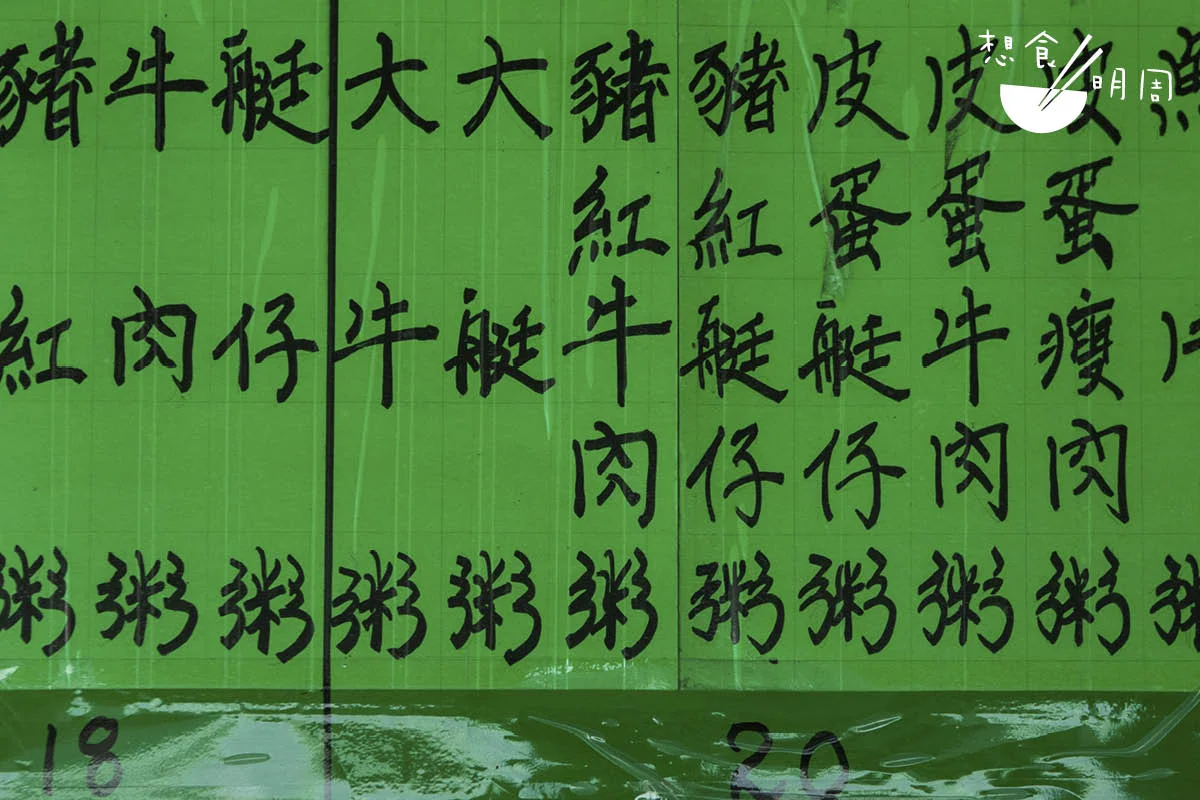 想食明周
皮蛋瘦肉粥
皮蛋牛肉粥
皮蛋艇仔粥
豬紅艇仔粥
豬紅牛肉粥
大艇粥
大牛粥
艇仔粥
牛肉粥
豬紅粥
20
18